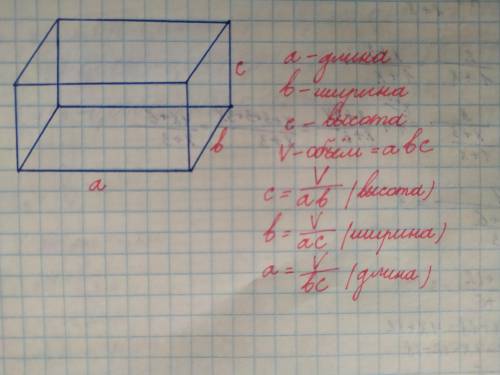 a - длина
b - ширина
c - высота
V - объём = abc
c = V/ab (высота)
b = V/ac (ширина)
a = V/bc (длина)
c
b
a